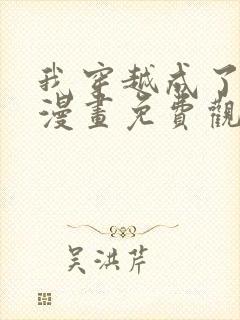 我穿越成了
漫畫免費觀
吳洪芹